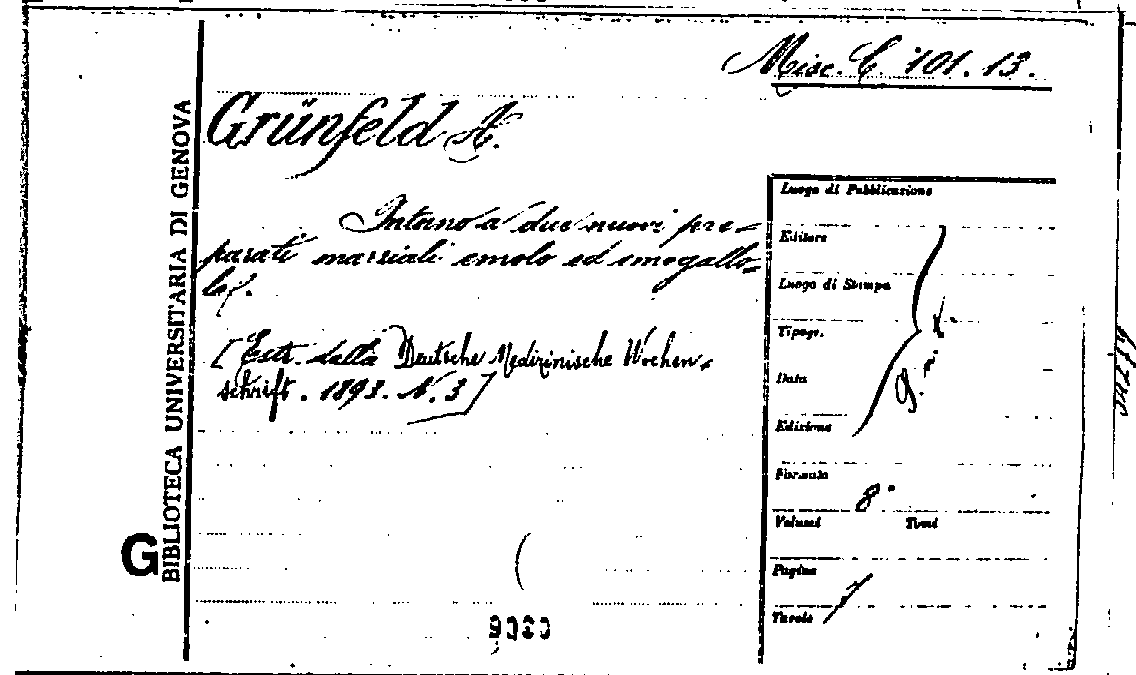 Misc. C. 101. 13.
Grünfeld A.
Intorno a due nuovi pre=
parati marziali emolo ed emogallo=
lo.
[Estr. dalla Deutsche Medizinische Wochen=
schrift. 1893. N. 3]
BIBLIOTECA UNIVERSITARIA DI GENOVA
G
Luogo di Pubblicazione
Editore
Luogo di Stampa
Tipogr.
Data
Edizione
Formato 8°
Volumi Tomi
Pagine
Tavole